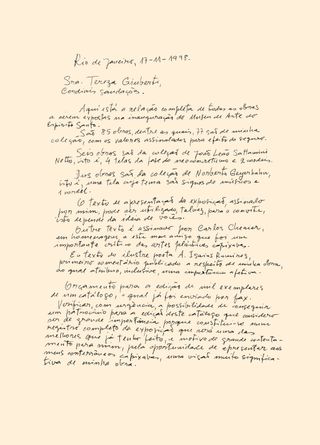 Rio de Janeiro, 17-11-1998.
Sra. Tereza Giuberti,
Cordiais saudações.
Aqui está a relação completa de todas as obras
a serem expostas na inauguração do Museu de Arte do
Espírito Santo.
São 85 obras, dentre as quais, 77 são de minha
coleção, com os valores assinalados para efeito do seguro.
Seis obras são da coleção de João Leão Sattamini
Netto, isto é, 4 telas da fase do neoconcretismo e
Duas obras são da coleção de Norberto
isto é, uma tela cuja tema são signos de
O texto de apresentação da exposição, assinado
por mim, pode ser utilizado talvez, para o convite,
isto depende da ideia de vocês.
Outro texto é assinado por Carlos Chenier,
em homenagem a este meu amigo que foi um
importante crítico das artes plásticas capixaba.
E o texto do ilustre poeta A. Isaias Ramires,
primeiro comentário publicado a respeito de minha obra,
ao qual atribuo, inclusive, uma importância afetiva.
Orçamento para a edição de mil exemplares
de um catálogo, o qual já foi enviado por fax.
Verificar, com urgência, a possibilidade de conseguir
um patrocínio para a edição deste catálogo que considero
ser de grande importância porque constitui-se num
registro completo da exposição que será uma das
melhores que já tenho feito, e motivo de grande contenta-
mento para mim, pela oportunidade de apresentar aos
meus conterrâneos capixabas, uma visão muito significa-
tiva de minha obra.